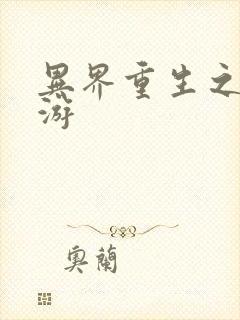 異界重生之
游
奧蘭